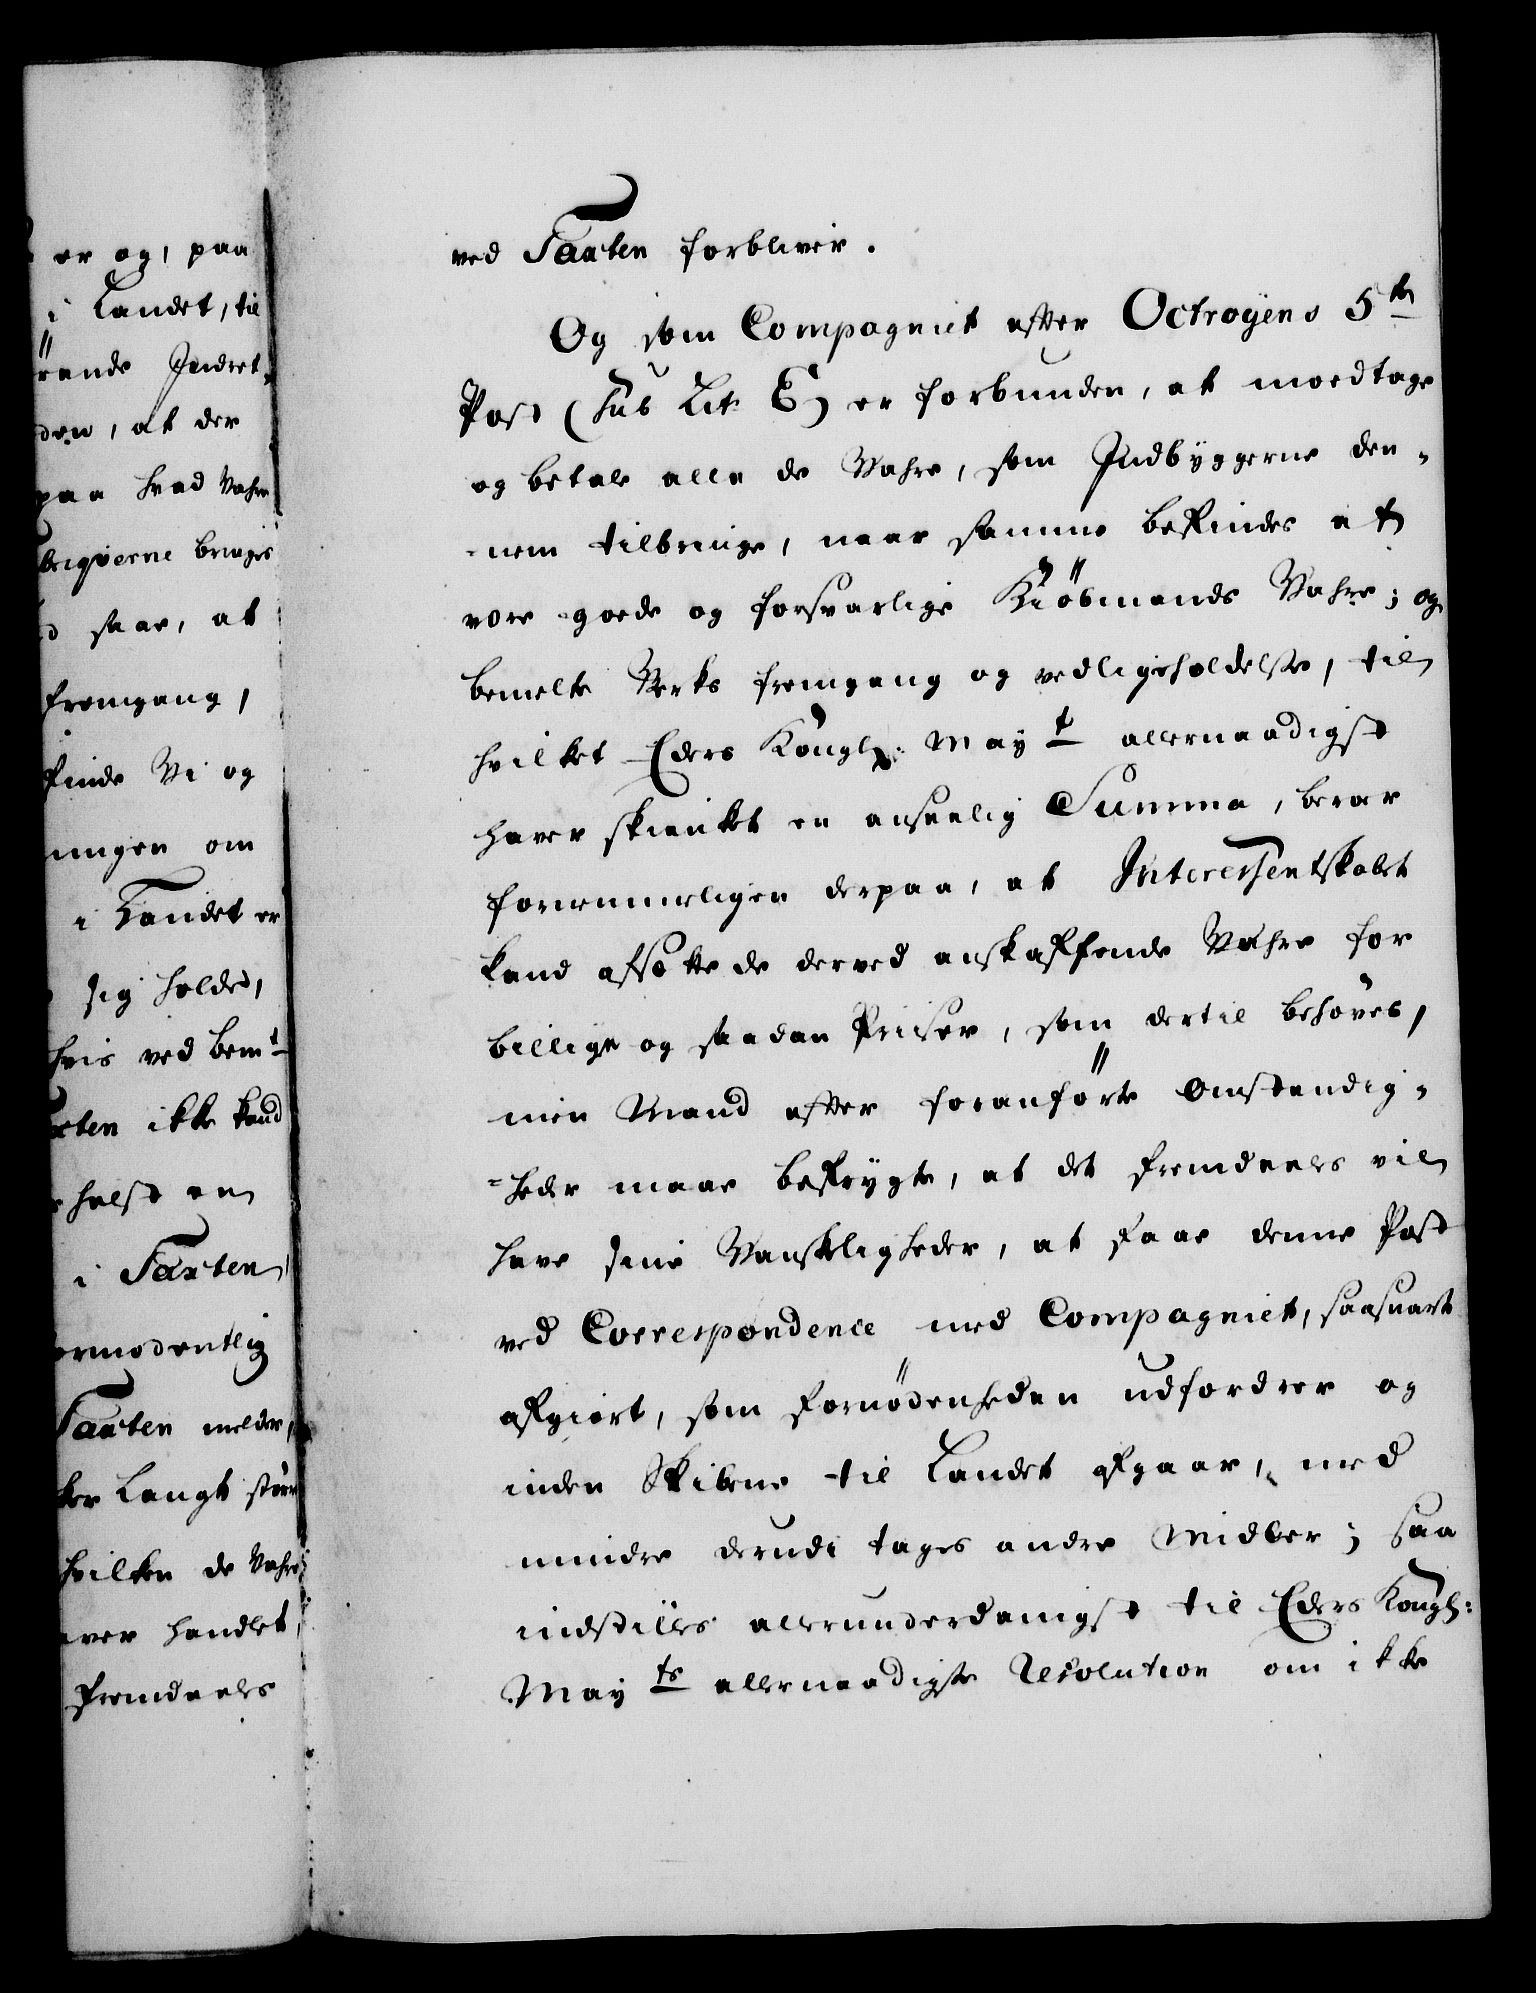 er og, paa
i Landet, til
rende Indret-
den, at der
paa hvad Vahre
briqverne bruges
saae, at
fremgang,
finde Vi og
ningen om
i Landet er
sig holdes,
hvis ved bemt
axten ikke kand
helst en
i Taxten,
ormodentlig
Taxten melder,
ker langt større
hvilken de Vahre
aver handlet,
fremdeeles
ved Taxten forbliver.
Og som Compagniet efter Octroyens 5te
Post (sub Lit. E) er forbunden, at moedtage
og betale alle de Vahre, som Indbyggerne den-
-nem tilbringe, naar samme befindes at
være goede og forsvarlige Kiöbmands Vahre; og
bemelte Verks fremgang og vedligeholdelse, til
hvilket Eders Kongl: Mayt allernaadigst
haver skienket en anseelig Summa, beroer
fornemmeligen derpaa, at Interessentskabet
kand afsætte de derved anskaffende Vahre for
billige og saadan Priiser, som dertil behöves,
men Mand efter foranförte Omstændig-
-heder maae befrygte, at det fremdeeles vil
have sine Vanskeligheder, at faae denne Post
ved Correspondence med Compagniet, saasnart
afgiort, som fornödenheden udfordrer og
inden Skibene til Landet afgaar, med
mindre derudi tages andre Midler; saa
indstilles allerunderdanigst til Eders Kongl:
Mayts allernaadigste Resolution om ikke